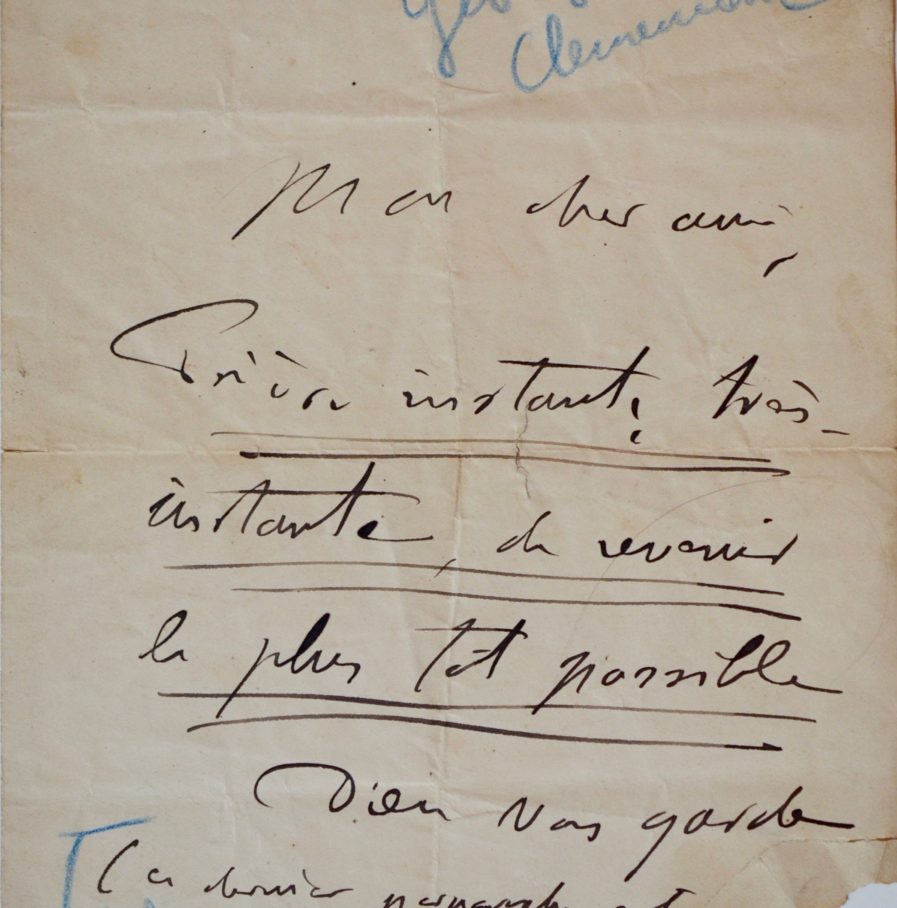 Clemenceau
Mon cher ami,
Prière instante, très-
instante, de revenir
le plus tôt possible
Dieu vous garde
(Ce dernier paragraphe est